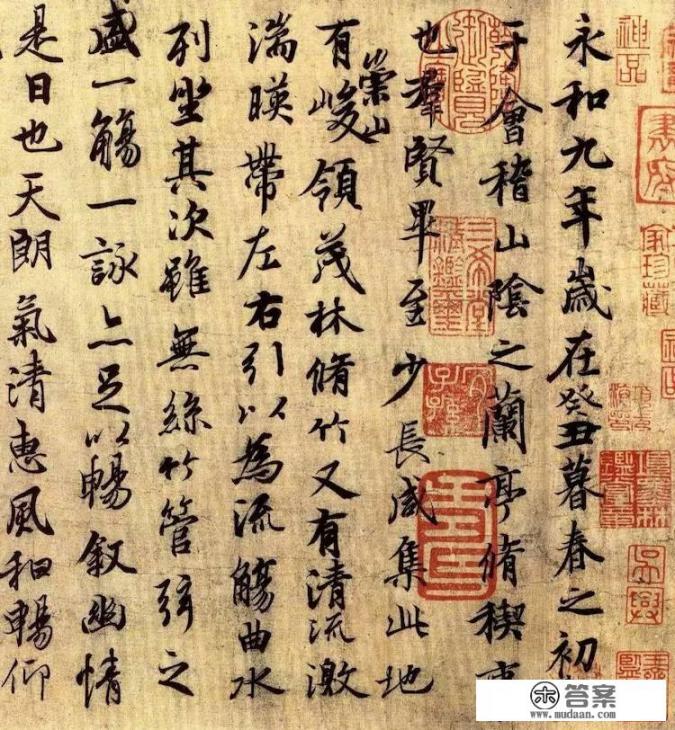 永和九年歲在癸丑暮春之初
于會稽山陰之蘭亭脩稧事
也羣賢畢至少長咸集此地
有崇山峻領茂林脩竹又有清流激
湍暎帶左右引以為流觴曲水
列坐其次雖無絲竹管弦之
盛一觴一詠亦足以暢敘幽情
是日也天朗氣清惠風和暢仰
神品
三希堂精鑑璽
宜子孫
答案
www.mudaan.com